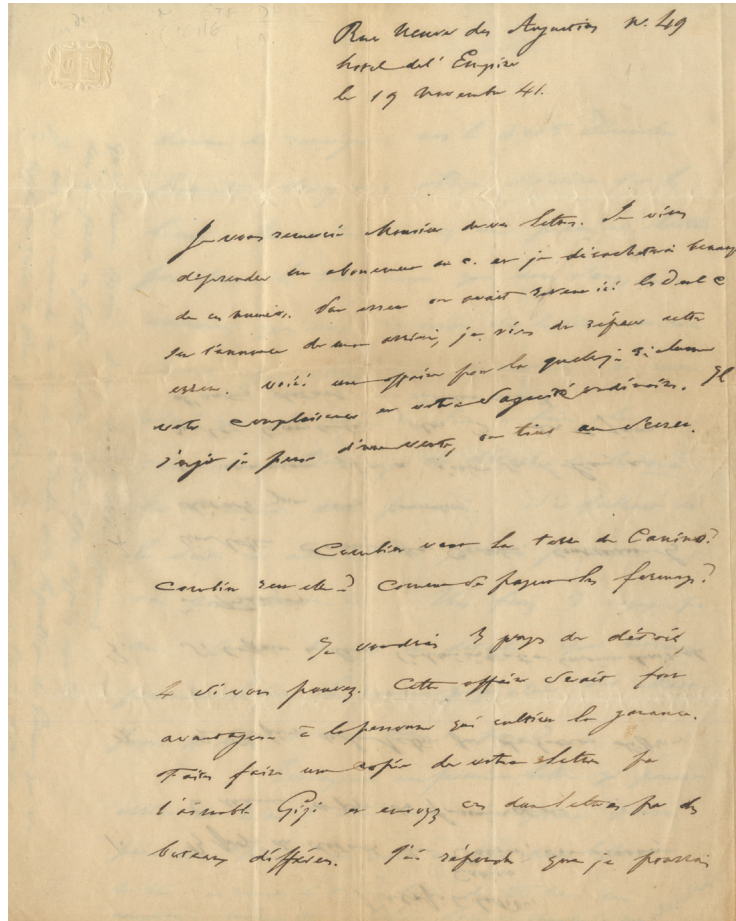 Rue neuve des Augustins n. 49
hotel de l'Empire
le 19 Novembre 41.
Je vous remercie Monsieur de vos lettres. Je viens
de prendre un abonnement au C. et je décachèterai
de ces numéros. Par erreur on avait
sur l'annonce de mon arrivée, je viens de réparer cette
erreur. Voici une affaire pour laquelle je réclame
votre complaisance et votre sagacité ordinaire. Il
s'agit je pense d'une vente, on tient au secret.
Combien vaut la terre de Canino?
Combien rend elle? Comment payent les fermages?
Je voudrais 3 pages de détails
4 si vous pouvez. Cette affaire serait fort
avantageuse à la personne qui cultive la garance.
Faites faire une copie de votre lettre par
l'aimable Gigi et envoyez ces deux lettres par des
bateaux différens. J'ai répondu que je pouvais